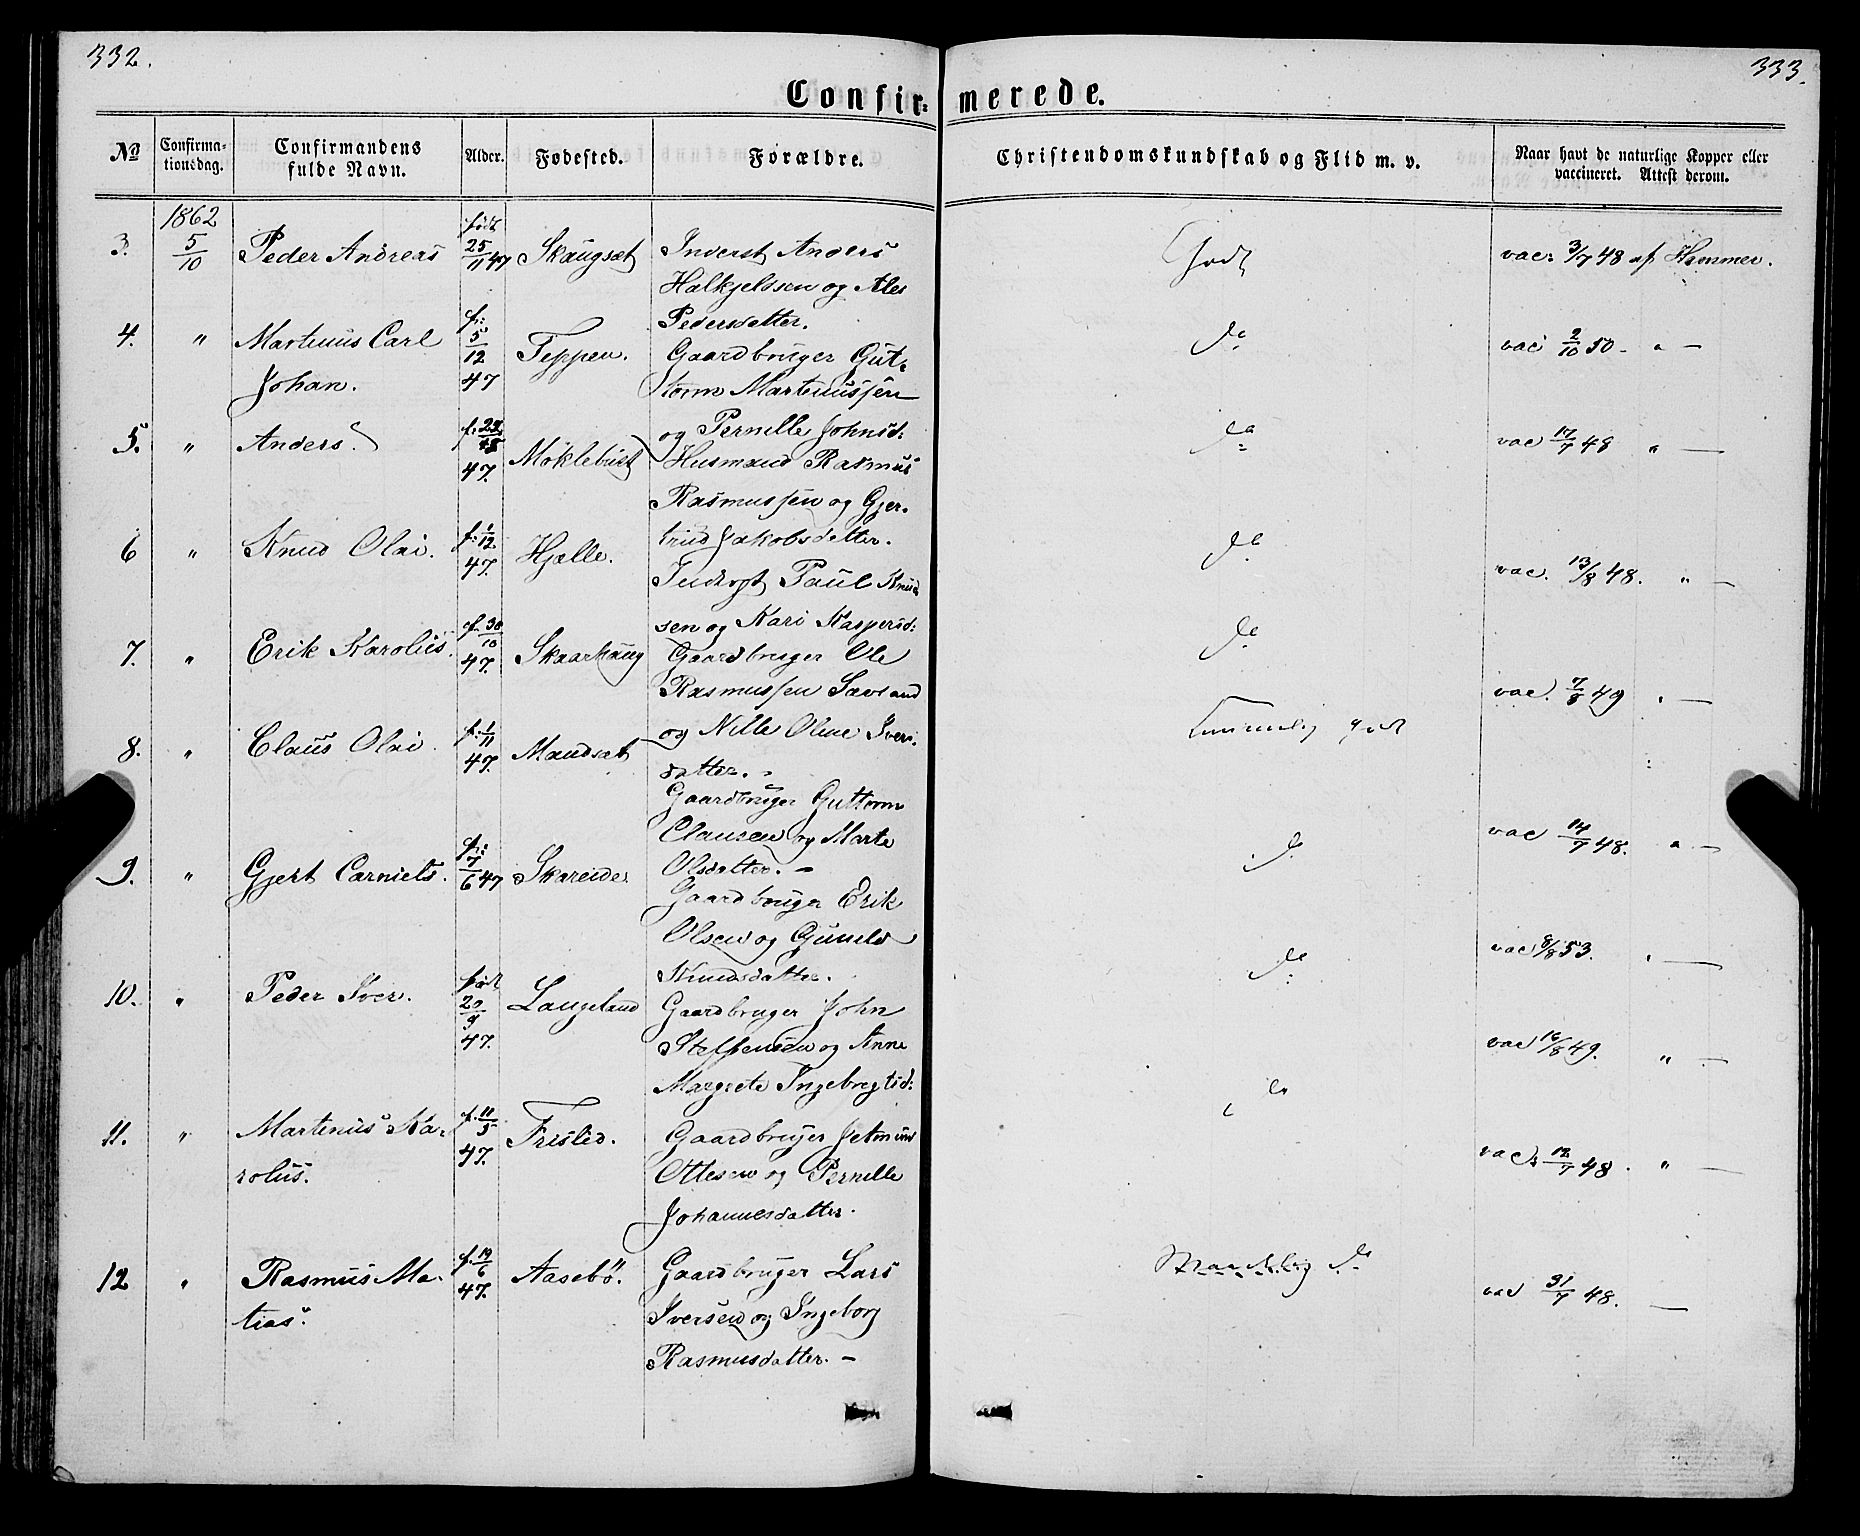 332.
333.
Confir= merede.
No
Confirma-
tionsdag.
Confirmandens
fulde Navn.
Alder.
Fødested.
Forældre.
Christendomskundskab og Flid m. v.
Naar havt de naturlige Kopper eller
vaccineret. Attest derom.
1862
3. 5/10 Peder Andreas født 25/11 47 Skaugsæt Inderst Anders
Halkjeldsen og Ales
Pedersdatter.
Godt
vac: 3/7 48 af Hammer.
4. " Martinus Carl
Johan.
f: 5/12 47 Teppen. Gaardbruger Gut=
torm Martinussen
og Pernille Johnsd:
do
vac 2/10 50 - " -
5. " Anders.
47. Møklebust Husmand Rasmus
Rasmussen og Gjer-
trud Jakobsdatter.
do
vac 17/7 48 " -
6 " Knud Olai.
f. 1/12 47. Hjelle. Inderst Paul Knud
sen og Kari Kaspersd:
do
vac. 13/8 48. " -
7. " Erik Karolius.
f. 30/10 47. Skaarhaug Gaardbruger Ole
Rasmussen Sæveland
og Nille Oline Iver-
datter. -
do
vac. 7/8 49 " -
8. " Claus Olai.
f. 1/11 47. Mandsæt
Gaardbruger Guttorm
Clausen og Marte
Olsdatter. -
Temmelig godt
vac 14/7 48. " -
9. " Gjert Carniels.
f: 7/6 47 Skareide.
Gaardbruger Erik
Olsen og Gunild
Knudsdatter.
do
vac 8/8 53. " -
10. " Peder Iver.
født 20/9 47. Langeland
Gaardbruger John
Steffensen og Anne
Margrete Ingebregtsd:
do
vac 16/8 49. " -
11. " Martinus Ka-
rolus.
f. 11/5 47. Fristed.
Gaardbruger Jetmund
Ottesen og Pernille
Johannesdatter.
do
vac: 12/7 48. " -
12 " Rasmus Ma-
tias.
f. 19/6 47. Aasebö.
Gaardbruger Lars
Iversen og Ingeborg
Rasmusdatter. -
Maadelig do
vac 31/7 48. -